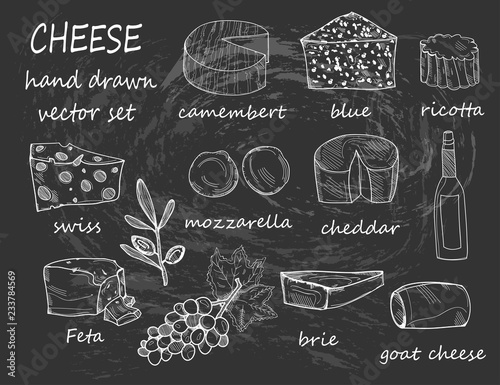 CHEESE
hand drawn
vector set
camembert
blue
ricotta
swiss
mozzarella
cheddar
Feta
brie
goat cheese
#233784569